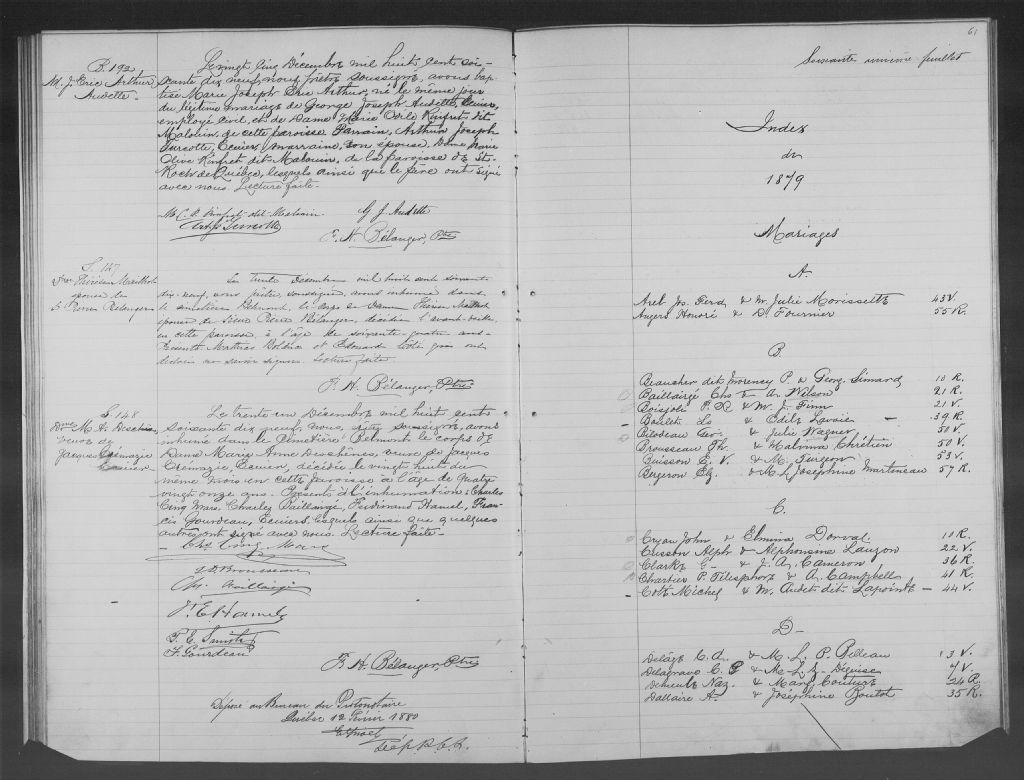 B. 192
M. J. Eric Arthur
Audette.
Le vingt cinq Décembre mil huit cent soi-
xante dix neuf, nous, prêtre soussigné, avons bap-
tisé Marie Joseph Eric Arthur, né le même jour
du légitime mariage de George Joseph Audette, Ecuier,
employé civil, et de Dame Marie Odile Rinfret dit
Malouin, de cette paroisse. Parrain, Arthur Joseph
Turcotte, Ecuier, marraine, son épouse, Dame Marie
Olive Rinfret dit Malouin, de la paroisse de St.
Roch de Québec, lesquels ainsi que le père ont signé
avec nous. Lecture faite.
Rinfret dit Malouin
G J Audette
Turcotte
F. H. Bélanger, Ptre
S. 147
Thérèse Mailhot
épouse de
Pierre Bélanger
Le trente Décembre mil huit cent soixante
dix-neuf, nous, prêtre, soussigné, avons inhumé dans
le cimetière Belmont, le corps de Dame Thérèse Mailhot
épouse de Sieur Pierre Bélanger, décédée l'avant-veille,
en cette paroisse à l'âge de soixante-quatre ans.
Présents Mathias Bolduc et Edouard qui ont
déclaré ne savoir signer. Lecture faite.
F. H. Bélanger, Ptre
S. 148
Dme M. A. Deschênes
veuve de
Jacques Crémazie
Ecuier
Le trente un Décembre mil huit cent
soixante dix neuf, nous, prêtre soussigné, avons
inhumé dans le Cimetière Belmont le corps de
Dame Marie Anne Deschênes, veuve de Jacques
Crémazie, Ecuier, décédée le vingt huit du
même mois en cette paroisse à l'âge de quatre
vingt onze ans. Présents à l'inhumation: Charles
Cinq Mars, Charles Baillairgé, Ferdinand Hamel, Fran-
çois Gourdeau, Ecuiers lesquels ainsi que quelques
autres ont signé avec nous. Lecture faite.
Chs Cinq Mars
J B Brousseau
Ch. Baillairgé
F. E. Hamel
T. E. Smith
F. Gourdeau
F. H. Bélanger, Ptre
Déposé au Bureau du Protonotaire
Québec 12 Février 1880
61
Soixante unième feuillet
Index
de
1879
Mariages
A.
Arel Js. Ferd. & M. Julie Morissette 43 V.
Angers Honoré & D. Fournier 55 R.
B.
Beaucher dit Morency P. & Georg. Simard 10 R.
Baillairgé Chs & A. Wilson 21 R.
Boisjoli P. & M. J. Finn 21 V.
Boulet Ls & Edile Lavoie - 39 R.
Bilodeau Geo. & Julie Wagner 50 V.
Brousseau Th. & Malvina Chrétien 50 V.
Buisson E. V. & M. Turgeon 53 V.
Bergeron Elz. & M. L. Josephine Martineau 57 R.
C.
Cryan John & Elmina Dorval 10 R.
Cusson Alph & Alphonsine Lauzon 22 V.
Clarke G & J. A. Cameron 36 R.
Chartier P. Télesphore & A. Campbell 41 R.
Côté Michel & M. Audet dit Lapointe - 44 V.
D -
Delâge C. A. & M. L. P. Bédeau 13 V.
Delagrave C. & M. L. Z. Déguise 7 V.
Demeule Naz. & Marg. Couture 24 R.
Dallaire A. & Joséphine Boutet 35 R.